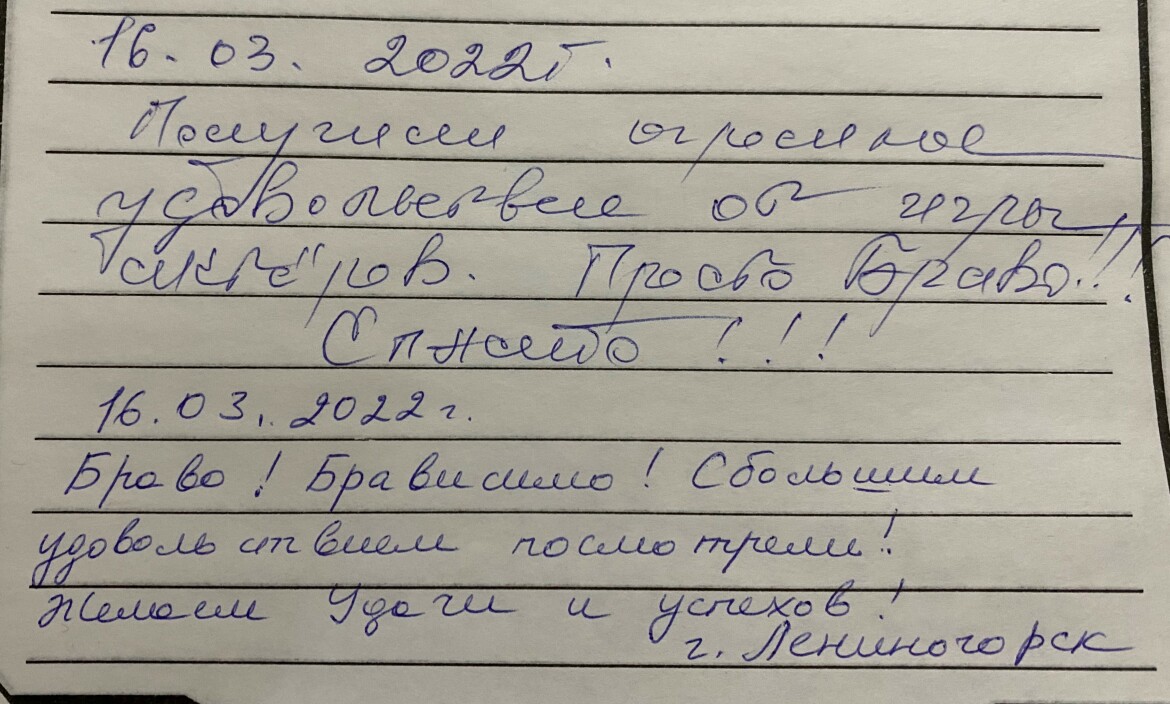 16.03. 2022г.
Получили огромное
удовольствие от игры
актёров. Просто Браво!!!
Спасибо!!!
16.03. 2022г.
Браво! Брависимо! С большим
удовольствием посмотрели!
Желаем Удачи и успехов!
г. Лениногорск